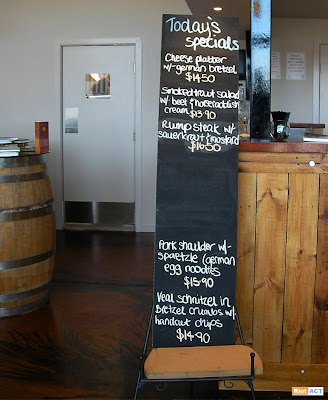 Today's
specials
Cheese platter
w/- german bretzel
$14.50
Smoked trout salad
w/ beet & horseradish
cream $13.90
Rump steak w/
sauerkraut & mustard
$16.50
Pork shoulder w/-
spaetzle (german
egg noodles
$15.90
Veal schnitzel in
Bretzel crumbs w/.
handcut chips
$14.90
Riot ACT